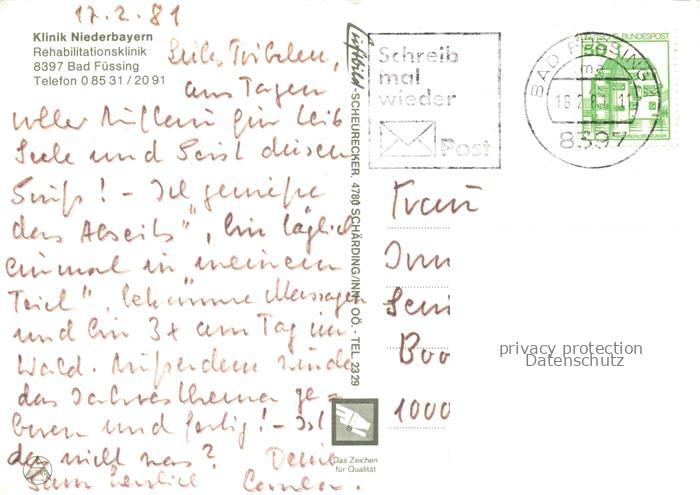 17.2.81
Klinik Niederbayern
Rehabilitationsklinik
8397 Bad Füssing
Telefon 0 85 31 / 20 91
aus Tagen
voller Auftun für Leib
Seele und Geist diesen
Gruß! - Ich genieße
das "Abseits", bin täglich
einmal in meinem
"Teich", bekomme Massagen
und bin 3x am Tag im
Wald. Außerdem wurde
das Jahresthema ge=
boren und fertig! - Ist
das nicht was? Deine
Luftbild-SCHEURECKER, 4780 SCHÄRDING/INN OÖ. - TEL. 2329
Das Zeichen
für Qualität
Schreib
mal
wieder
Post
DEUTSCHE BUNDESPOST
50
BAD FÜSSING 1
8397
Frau
1000
privacy protection
Datenschutz